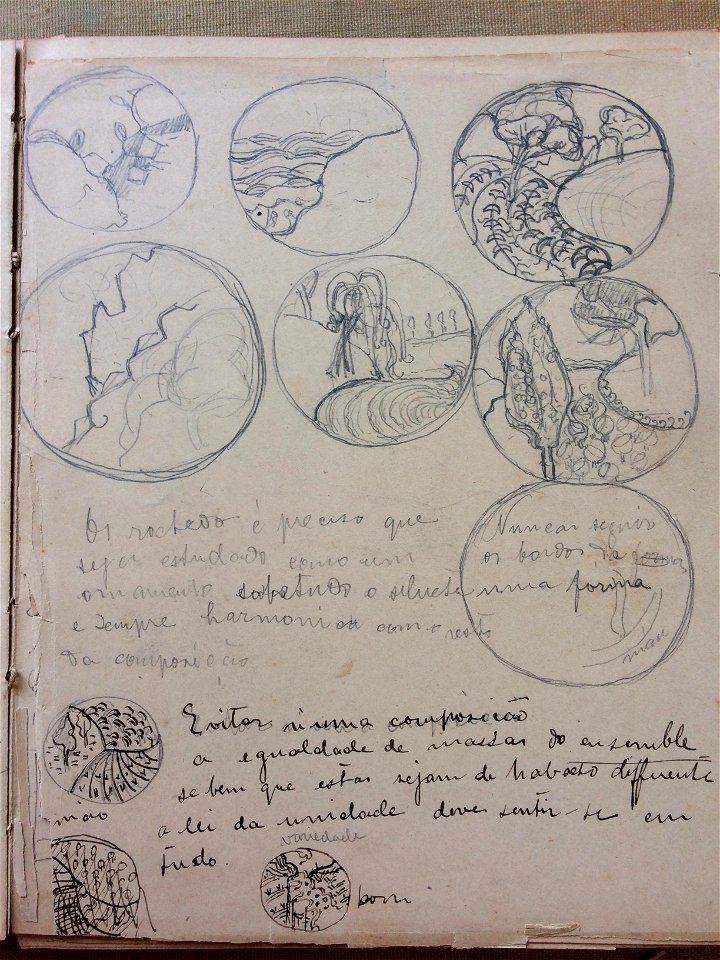 Os rochedo é preciso que
seja estudado como um
ornamento sobretudo o silueta
e sempre harmonia com o resto
da composição
Nuncar seguir
os bordos da
numa forma
mau
Evitar n'uma composição
a egualdade de massas do ensemble
se bem que estas sejam de differente
a lei da unidade deve sentir-se em
tudo.
variedade
mão
bom